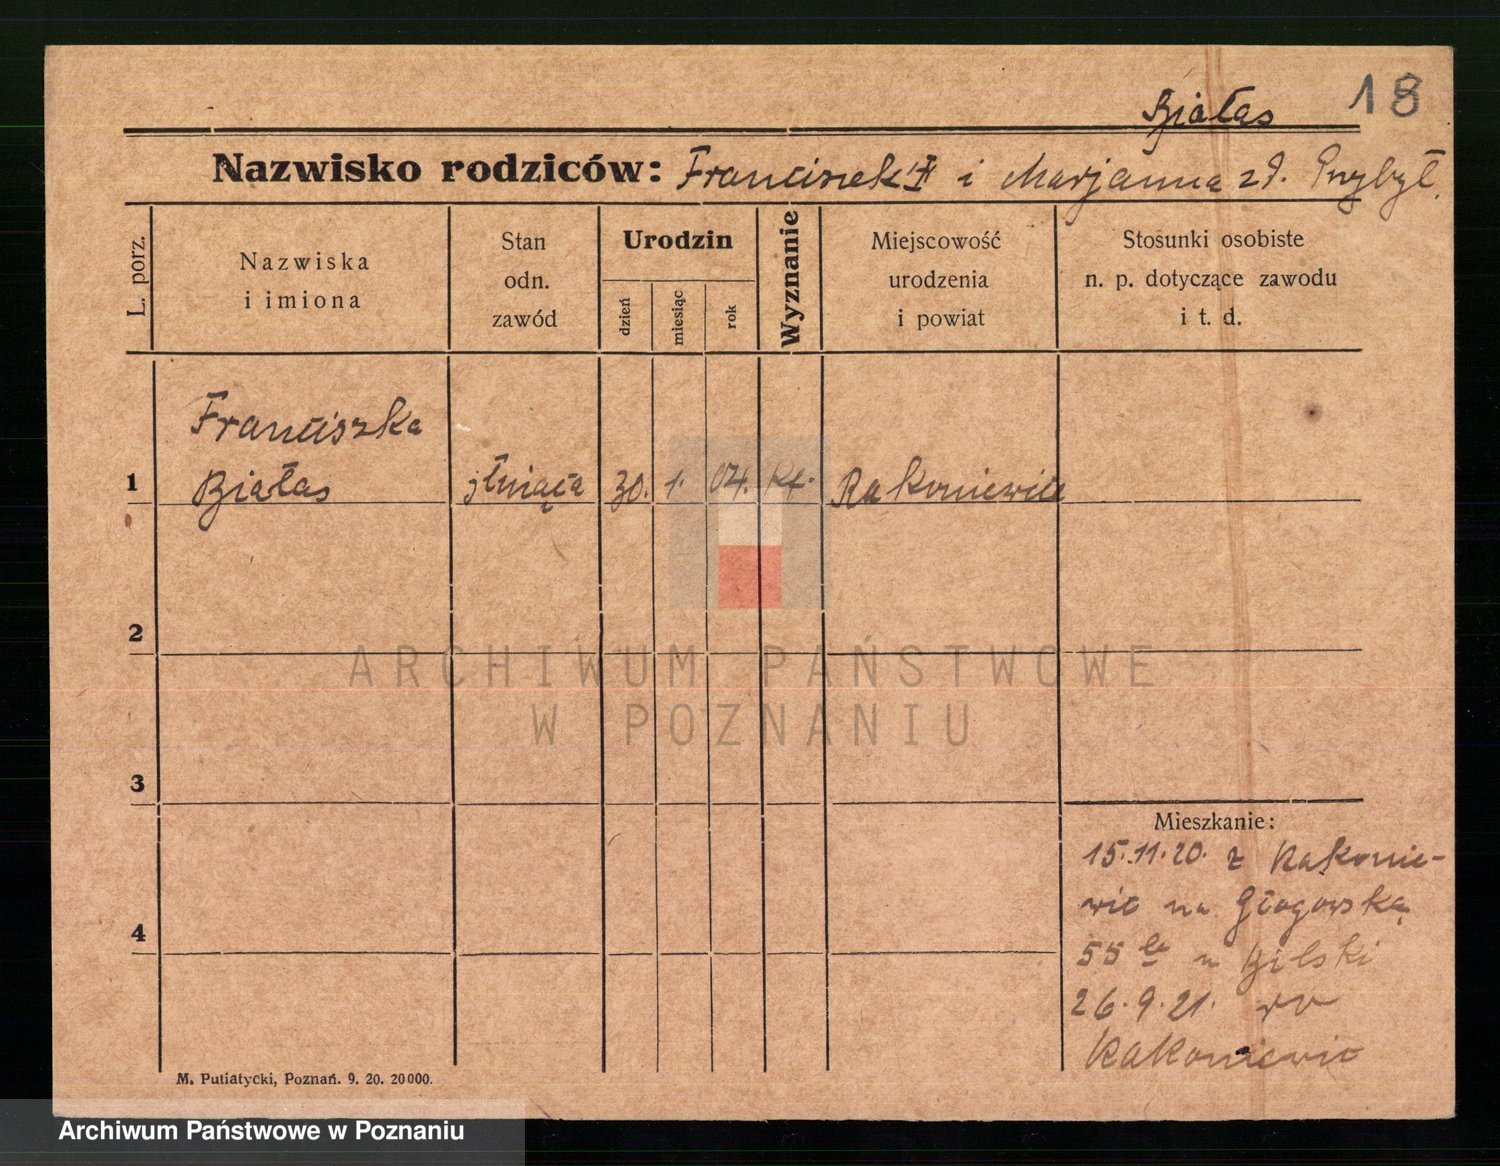 Białas 18
Nazwisko rodziców: Franciszek i Marjanna zd. Przybył.
L. porz.
Nazwiska
i imiona
Stan
odn.
zawód
Urodzin
dzień
miesiąc
rok
Wyznanie
Miejscowość
urodzenia
i powiat
Stosunki osobiste
n. p. dotyczące zawodu
i t. d.
Franciszka
1 Białas służąca 30. 1. 04. Kt. Rakoniewice
2
3
4
Mieszkanie:
15.11.20. z Rakonie-
wic na Głogowską
55 u Bilski
26.9.21.
Rakoniewic
M. Putiatycki, Poznań. 9. 20. 20000.
ARCHIWUM PAŃSTWOWE
W POZNANIU
Archiwum Państwowe w Poznaniu